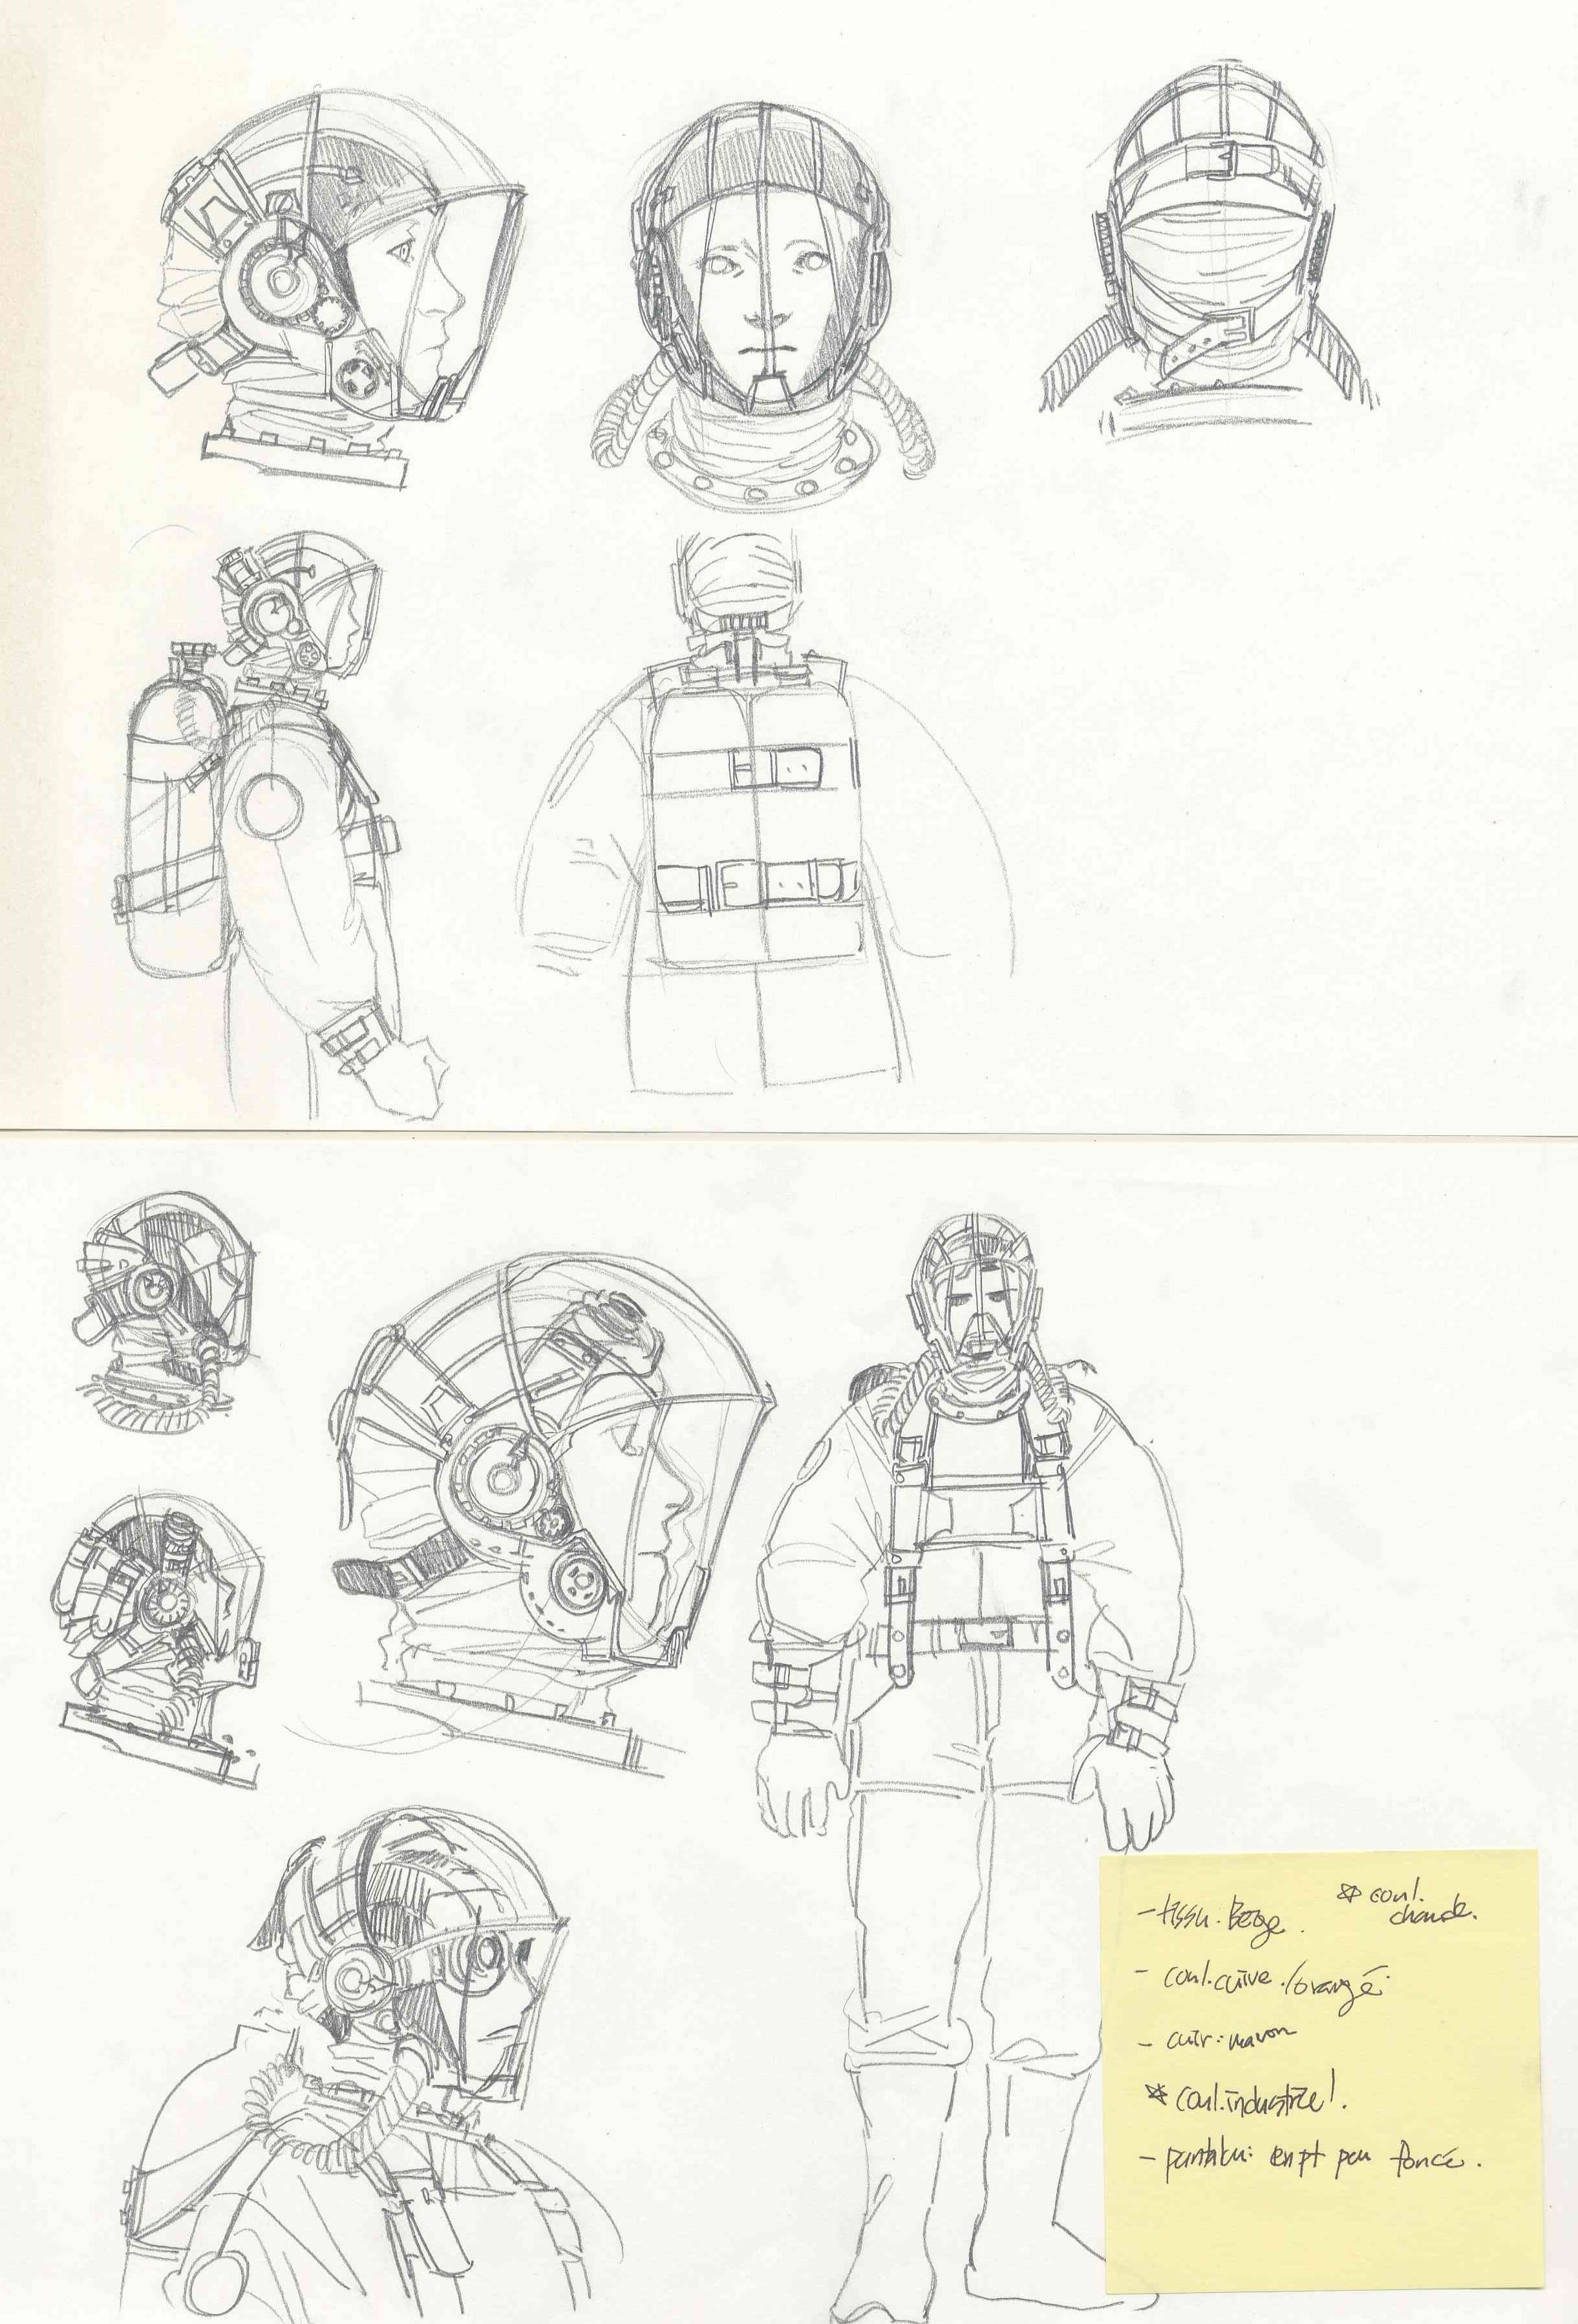 - tissu. Beige.
* coul. chaude.
- coul. cuivre / orangé.
- cuir: maron
* coul. industriel.
- pantalon: un pt peu foncé.